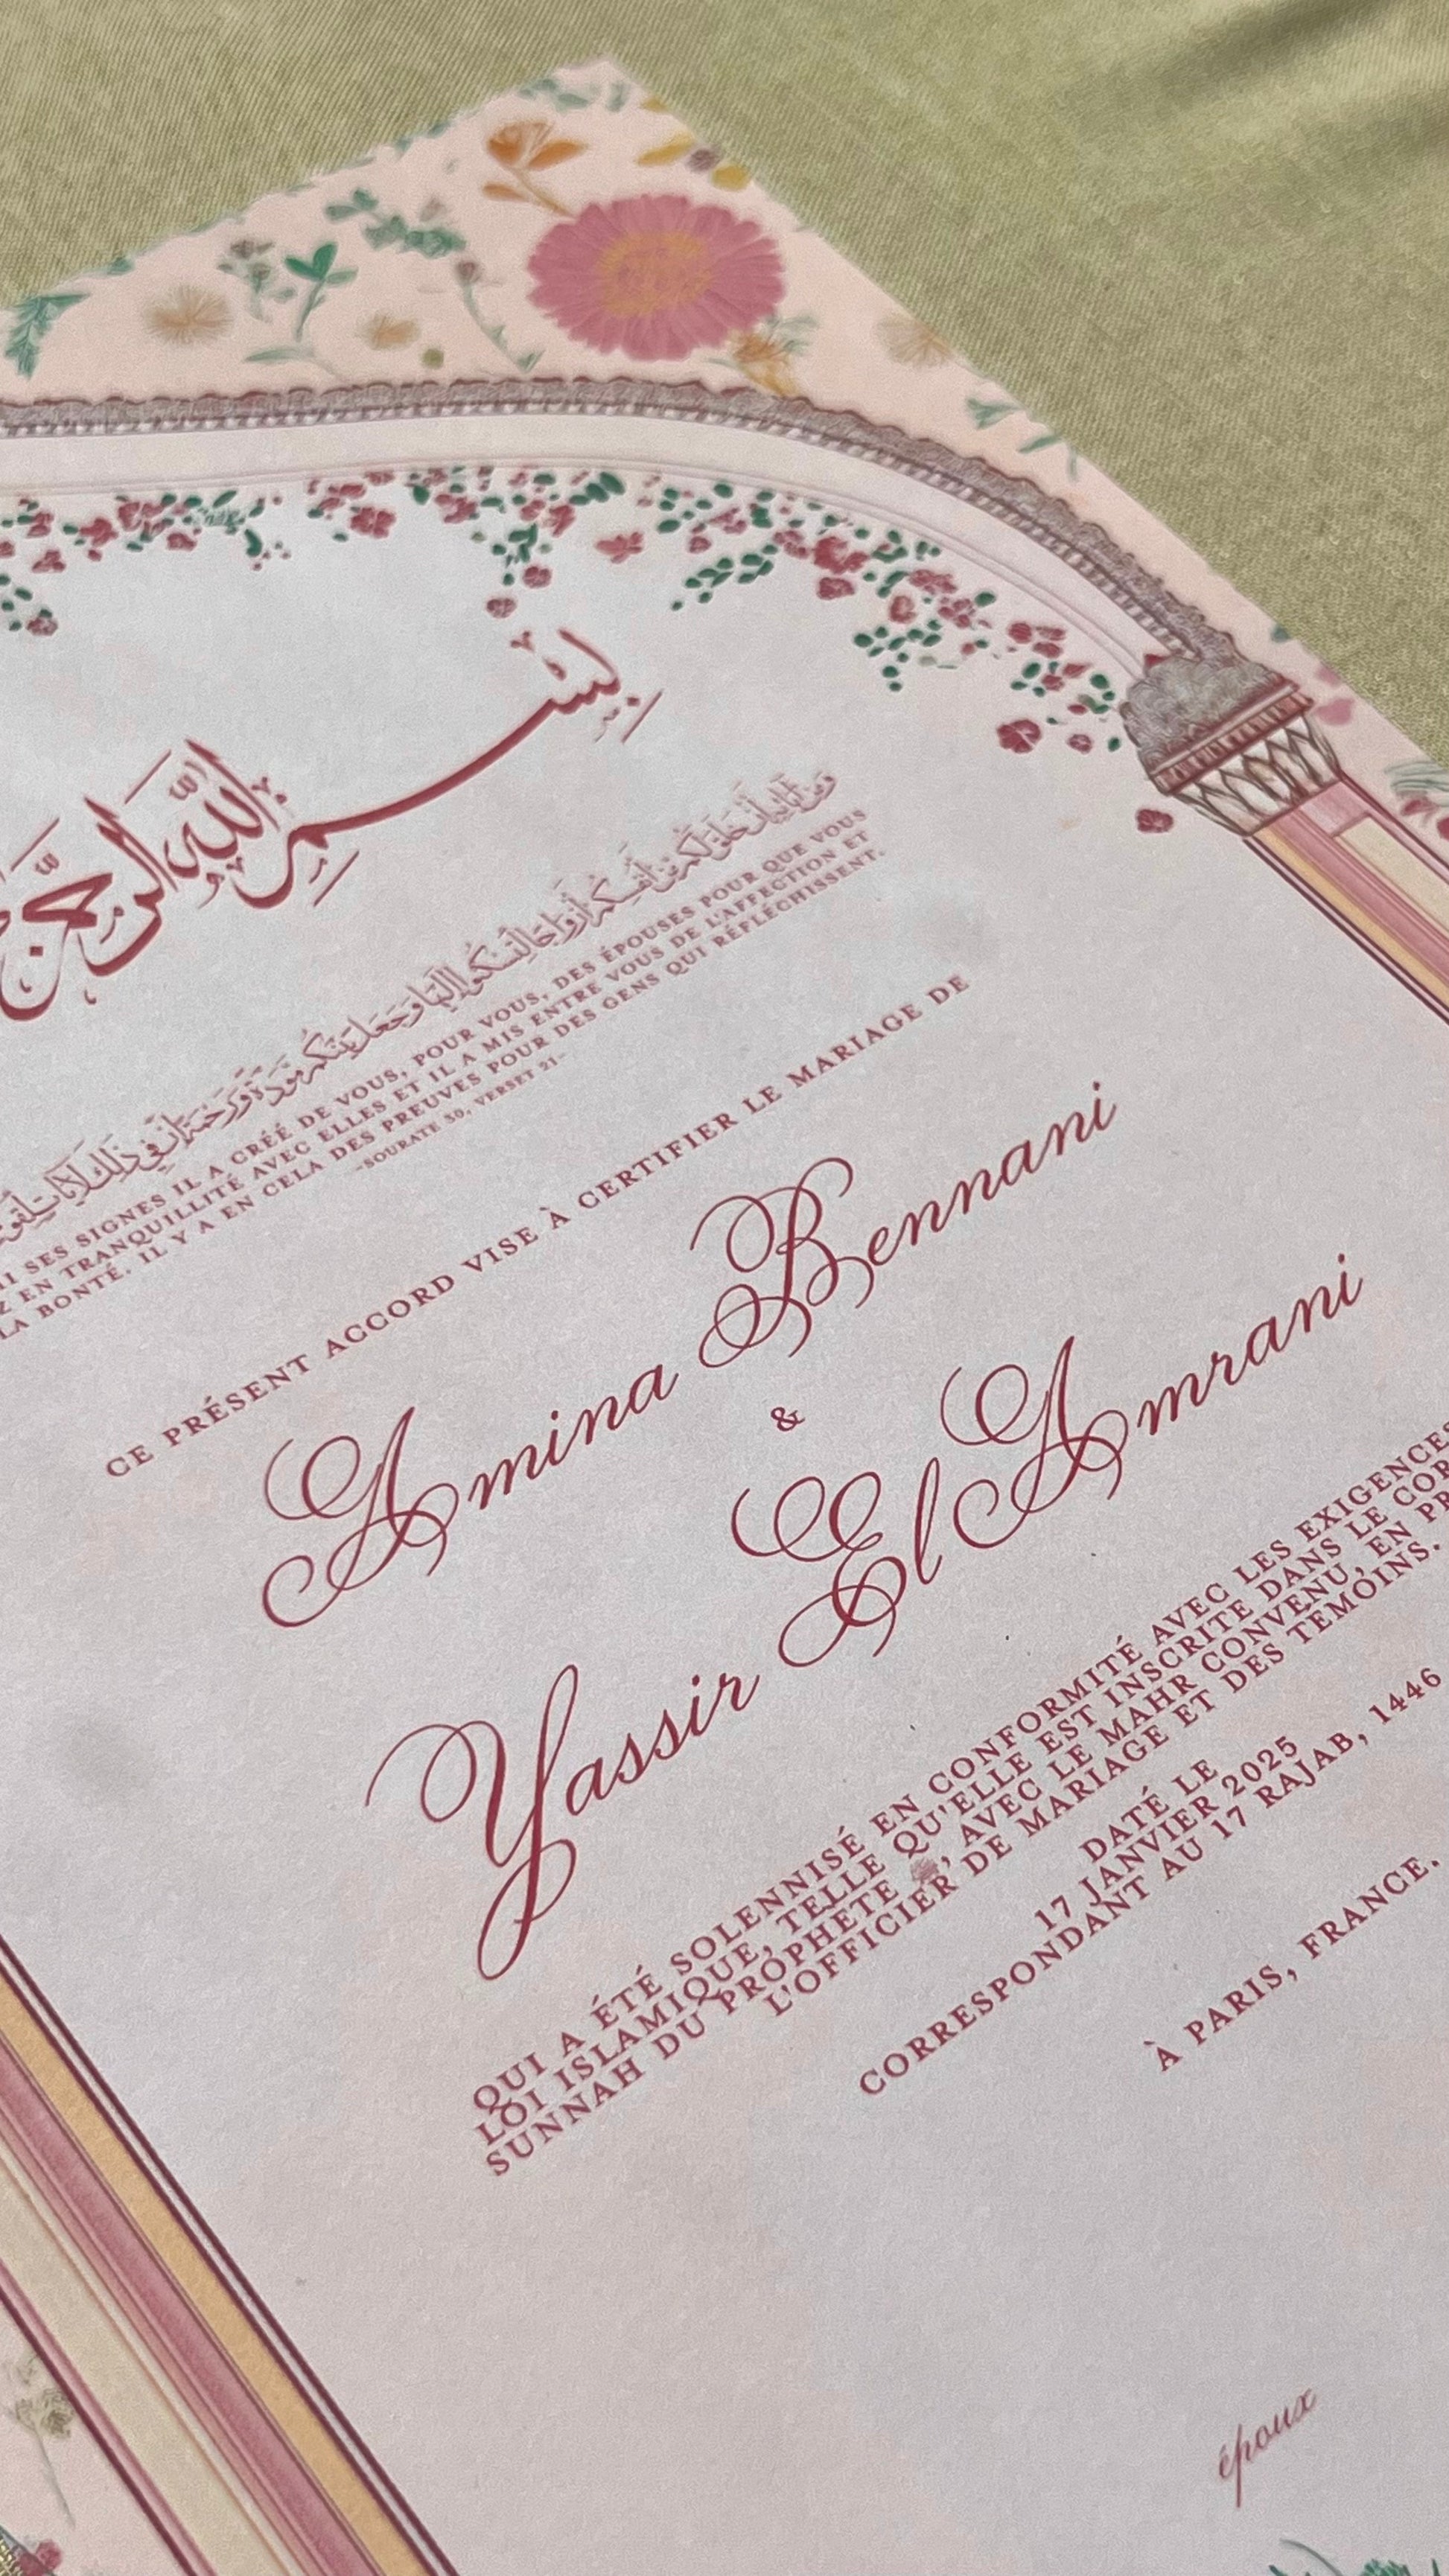 بِسْمِ اللَّهِ الرَّحْ
وَمِنْ آيَاتِهِ أَنْ خَلَقَ لَكُم مِّنْ أَنفُسِكُمْ أَزْوَاجًا لِّتَسْكُنُوا إِلَيْهَا وَجَعَلَ بَيْنَكُم مَّوَدَّةً وَرَحْمَةً إِنَّ فِي ذَٰلِكَ لَآيَاتٍ
SES SIGNES IL A CRÉÉ DE VOUS, POUR VOUS, DES ÉPOUSES POUR QUE VOUS
EN TRANQUILLITÉ AVEC ELLES ET IL A MIS ENTRE VOUS DE L'AFFECTION ET
LA BONTÉ. IL Y A EN CELA DES PREUVES POUR DES GENS QUI RÉFLÉCHISSENT.
-SOURATE 30, VERSET 21-
CE PRÉSENT ACCORD VISE À CERTIFIER LE MARIAGE DE
Amina Bennani
&
Yassir El Amrani
QUI A ÉTÉ SOLENNISÉ EN CONFORMITÉ AVEC LES EXIGENCES
LOI ISLAMIQUE, TELLE QU'ELLE EST INSCRITE DANS LE COR
SUNNAH DU PROPHÈTE ﷺ, AVEC LE MAHR CONVENU, EN PR
L'OFFICIER DE MARIAGE ET DES TEMOINS.
DATÉ LE
17 JANVIER 2025
CORRESPONDANT AU 17 RAJAB, 1446
À PARIS, FRANCE.
époux